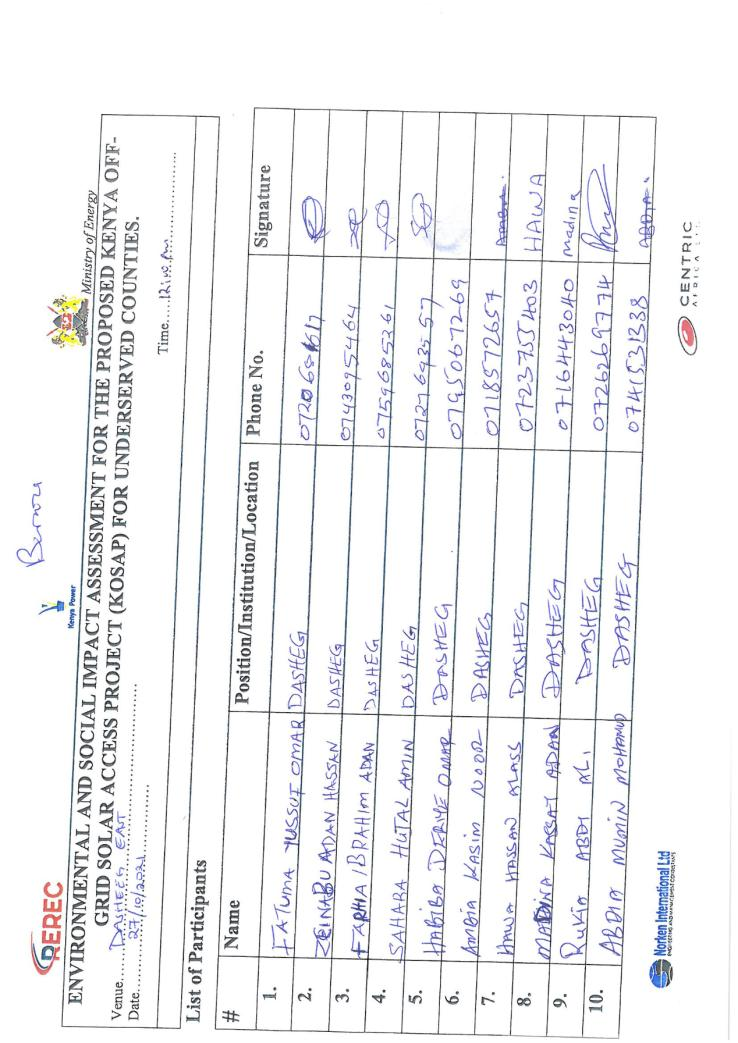 Berwa
REREC
Kenya Power
Ministry of Energy
ENVIRONMENTAL AND SOCIAL IMPACT ASSESSMENT FOR THE PROPOSED KENYA OFF-
GRID SOLAR ACCESS PROJECT (KOSAP) FOR UNDERSERVED COUNTIES.
Venue....DASHEEG EAST
Date....27/10/2021.... Time....
List of Participants
# Name Position/Institution/Location Phone No. Signature
1. FATUMA YUSSUF OMAR DASHEG 0720686617
2. ZEINABU ADAN HASSAN DASHEG 0743095464
3. FARHIA IBRAHIM ADAN DASHEG 0759685361
4. SAHARA HUJALAMIN DASHEG 0727693557
5. HABIBA DERIYE OMAR DASHEG 0795067269
6. AMBIA KASIM NOOR DASHEG 0718572657
7. HAWA HASSAN KLASS DASHEG 0723755403 HAWA
8. MADINA KASSAY ADAN DASHEG 0716443040 madina
9. RUKIA ABDI ALI DASHEG 0726269774
10. ABDIA MUMIN MOHAMUD DASHEG 0741531338 ABDIA
Norken International Ltd
ENGINEERING AND MANAGEMENT CONSULTANTS
CENTRIC
AFRICA LTD